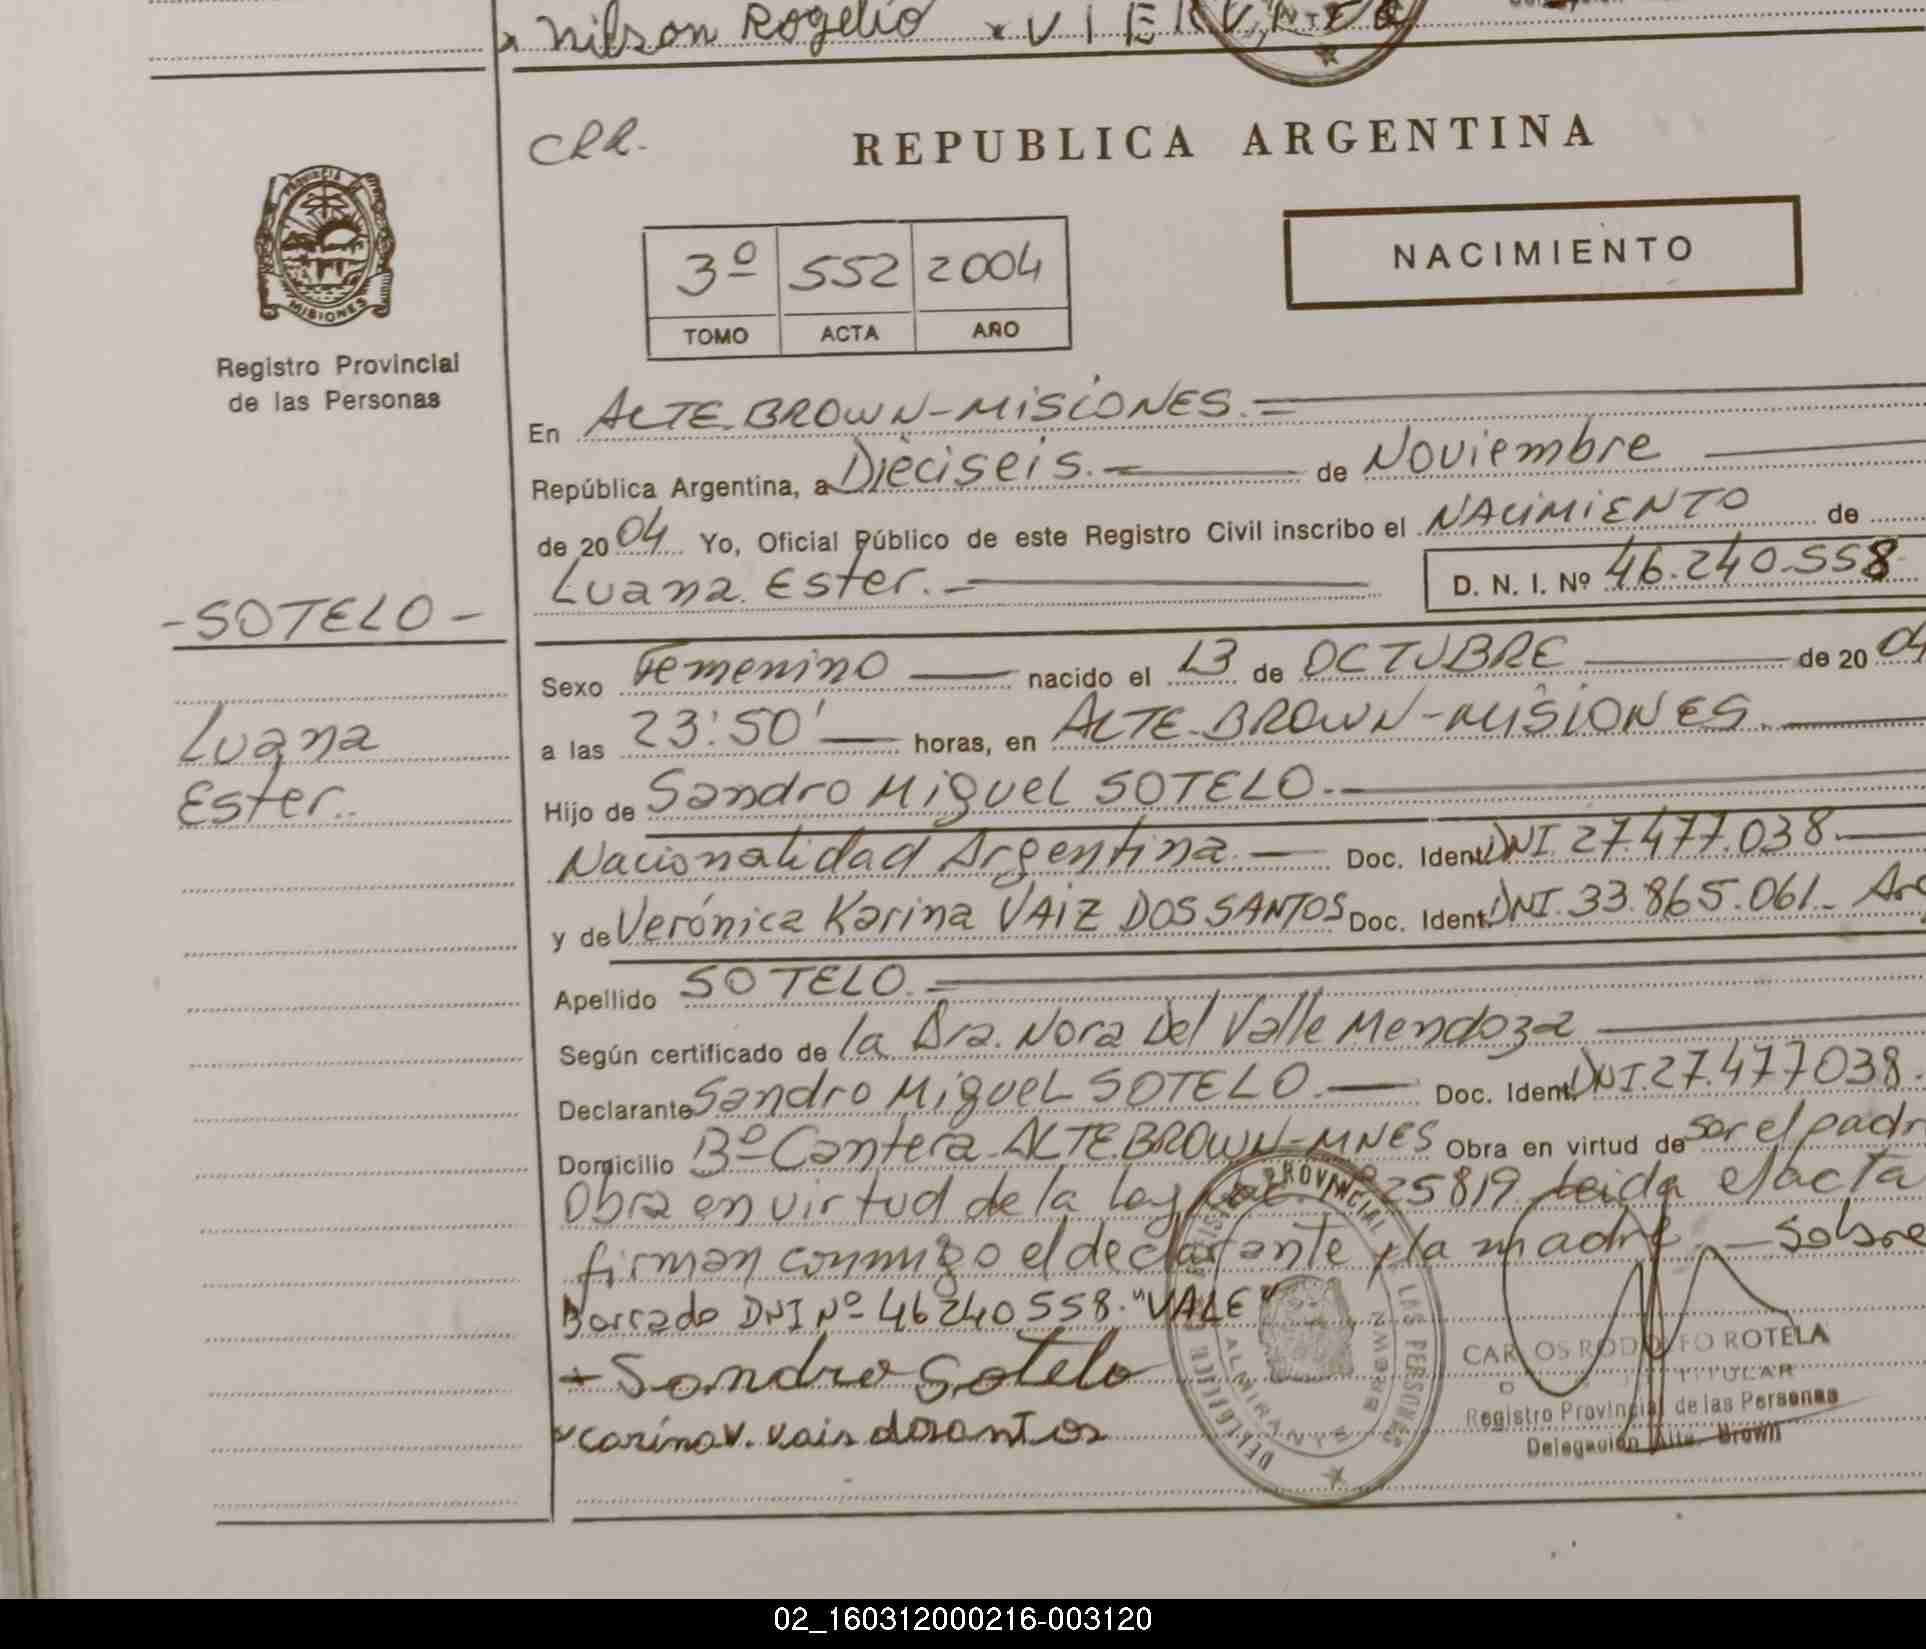 Nilson Rogelio x VIERA
CRR.
REPUBLICA ARGENTINA
PROVINCIA
MISIONES
Registro Provincial
de las Personas
3º 552 2004
TOMO ACTA AÑO
NACIMIENTO
En ALTE. BROWN-MISIONES.=
República Argentina, a Dieciseis.- de Noviembre
de 2004 Yo, Oficial Público de este Registro Civil inscribo el NACIMIENTO de
Luana Ester.- D. N. I. Nº 46.240.558
-SOTELO-
Luana
Ester.
Sexo Femenino nacido el 13 de OCTUBRE de 2004
a las 23:50' horas, en ALTE-BROWN-MISIONES.
Hijo de Sandro Miguel SOTELO.-
Nacionalidad Argentina.- Doc. Ident. DNI. 27.477.038.-
y de Verónica Karina VAIZ DOS SANTOS Doc. Ident. DNI. 33.865.061_ Arg
Apellido SOTELO.=
Según certificado de la Dra. Nora Del Valle Mendoza
Declarante Sandro Miguel SOTELO.- Doc. Ident. DNI. 27.477038.
Domicilio Bº Cantera-ALTE.BROWN-MNES Obra en virtud de ser el padr
Obra en virtud de la Ley 25819 leida el acta
firman conmigo el declarante y la madre. - Sobre
Borrado DNI Nº 46240558. "VALE"
Sandro Sotelo
x carina v. vais dosantos
DELEGACION REGISTRO PROVINCIAL DE LAS PERSONAS
ALMIRANTE BROWN
CARLOS RODOLFO ROTELA
TITULAR
Registro Provincial de las Personas
Delegación Alte. Brown
02_160312000216-003120